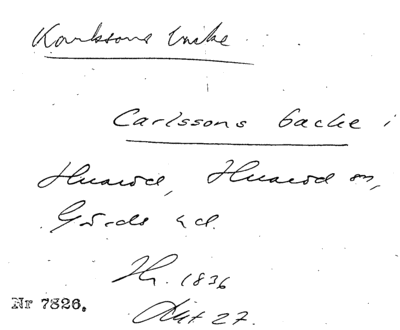 Karlssons backe
Carlssons backe i
Huaröd, Huaröd sn,
Gärds hd.
Hr. 1836
Akt 27.
Nr 7826.